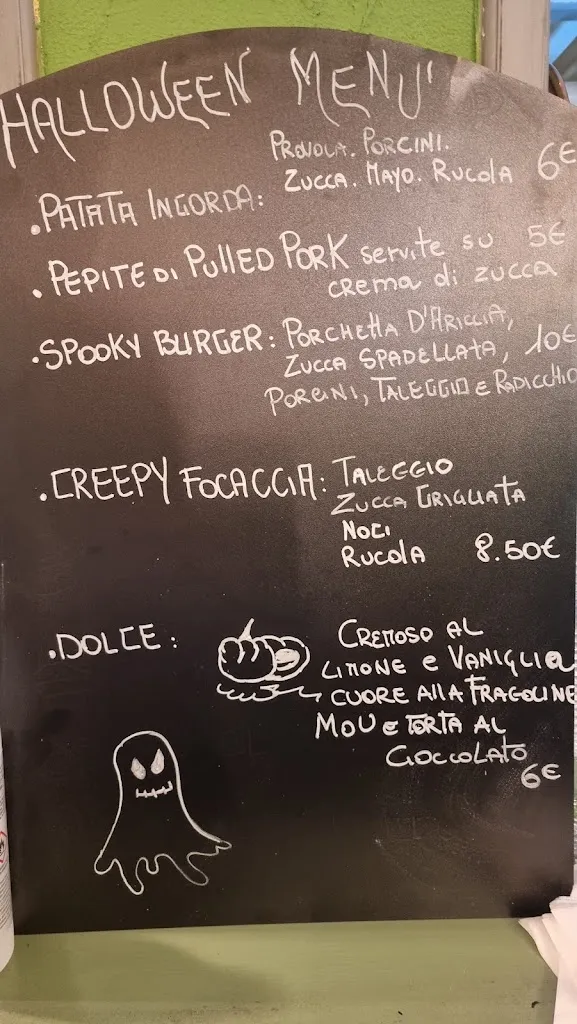 HALLOWEEN MENU'
PROVOLA. PORCINI.
.PATATA INGORDA: ZUCCA. MAYO. RUCOLA 6€
.PEPITE DI PULLED PORK servite su 5€
crema di zucca
.SPOOKY BURGER: PORCHETTA D'ARICCIA,
ZUCCA SPADELLATA, 10€
PORCINI, TALEGGIO E RADICCHIO
.CREEPY FOCACCIA: TALEGGIO
ZUCCA GRIGLIATA
NOCI
RUCOLA 8.50€
.DOLCE: CREMOSO AL
LIMONE e VANIGLIA
CUORE ALLA FRAGOLINE
MOU E TORTA AL
CIOCCOLATO
6€